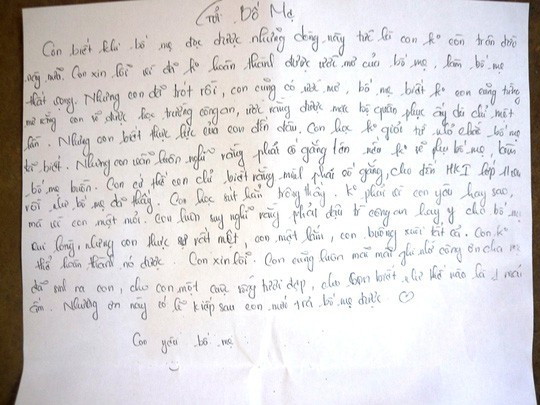 Gửi Bố Mẹ
Con biết khi bố mẹ đọc được những dòng này tức là con ko còn trên đời
này nữa. Con xin lỗi vì đã ko hoàn thành được ước mơ của bố mẹ, làm bố mẹ
thất vọng. Nhưng con đã trót rồi, con cũng có ước mơ, bố mẹ biết ko con cũng từng
mơ rằng con sẽ được học trường công an, ước rằng được mặc bộ quân phục ấy dù chỉ một
lần. Nhưng con biết thực lực của con đến đâu. Con học ko giỏi từ nhỏ chắc bố mẹ
đã biết. Nhưng con luôn luôn nghĩ rằng phải cố gắng lên nếu ko sẽ phụ bố mẹ, làm
bố mẹ buồn. Con có thể con chỉ biết rằng mình phải cố gắng, cho đến HKI lớp
rồi như bố mẹ đã thấy. Con học sút hẳn trông thấy. ko phải vì con yêu hay sao,
mà vì con mệt mỏi. Con luôn suy nghĩ rằng phải đậu trường công an hay y cho bố mẹ
vui lòng, nhưng con thực sự rất mệt, con mệt lắm, con buông xuôi tất cả. Con ko
thể hoàn thành nó được. Con xin lỗi. Con cũng luôn mãi mãi ghi nhớ công ơn cha mẹ
đã sinh ra con, cho con một cuộc sống tươi đẹp, cho con biết như thế nào là 1 mái
ấm. Nhưng ơn này có lẽ kiếp sau con mới trả bố mẹ được. ♡
Con yêu bố mẹ